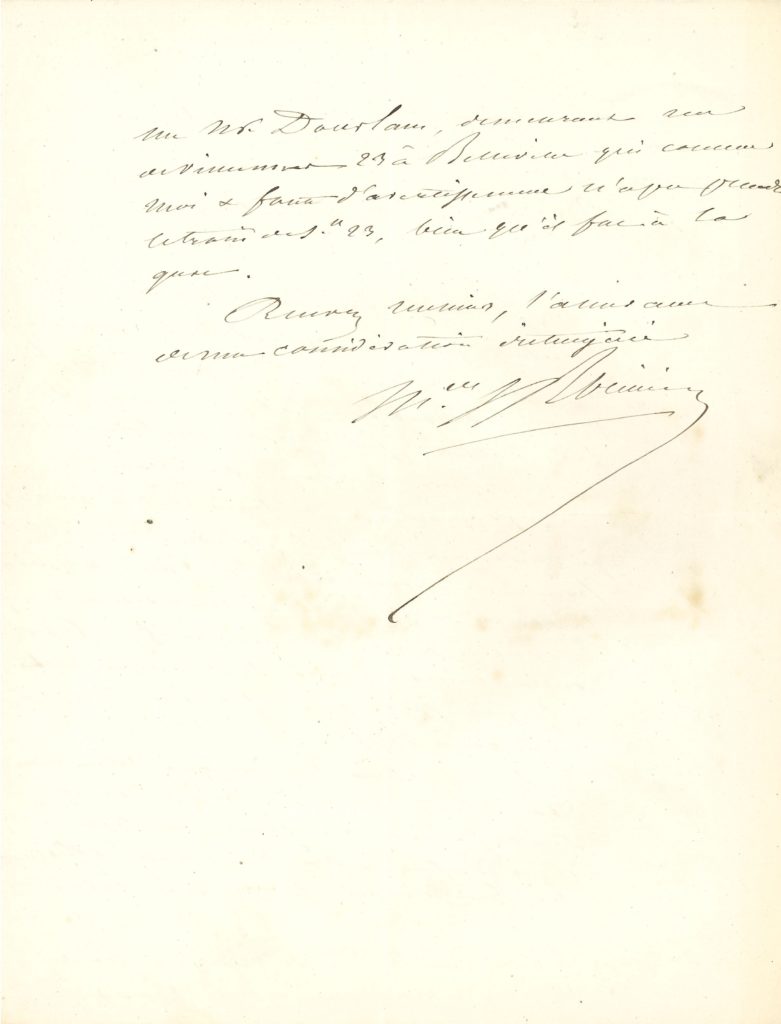 un Mr. Dourlans, demeurant rue
de Vincennes 23 à Belleville qui comme
moi & faute d'avertissement n'a pu prendre
le train de 5.h 23, bien qu'il fut à la
gare.
Recevez monsieur, l'assurance
de ma considération distinguée
M.